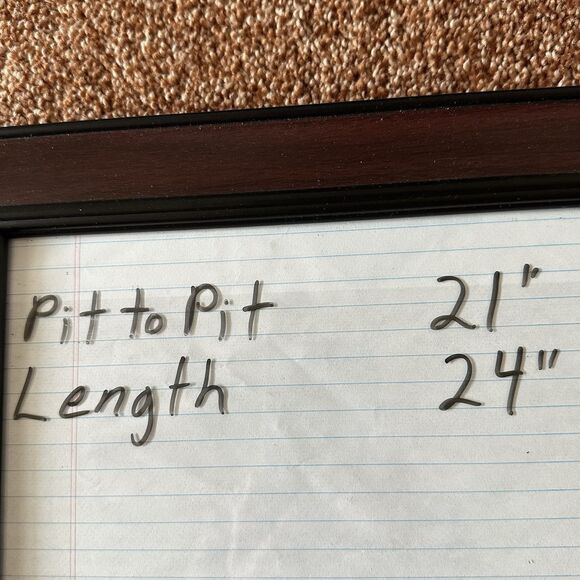 Pit to Pit 21"
Length 24"